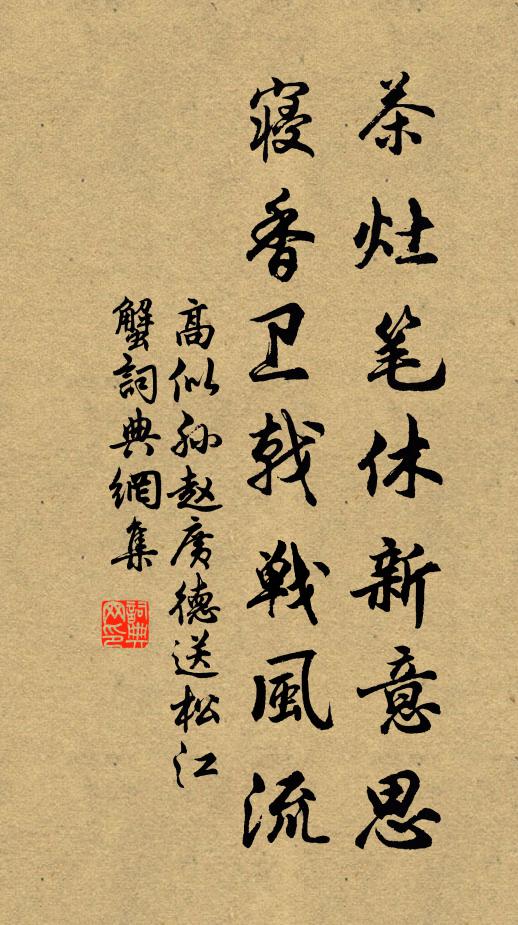 茶灶笔休新意思
寝香卫戟战風流
高似孙赵廣德送松江
蟹詞典網集
詞典网印